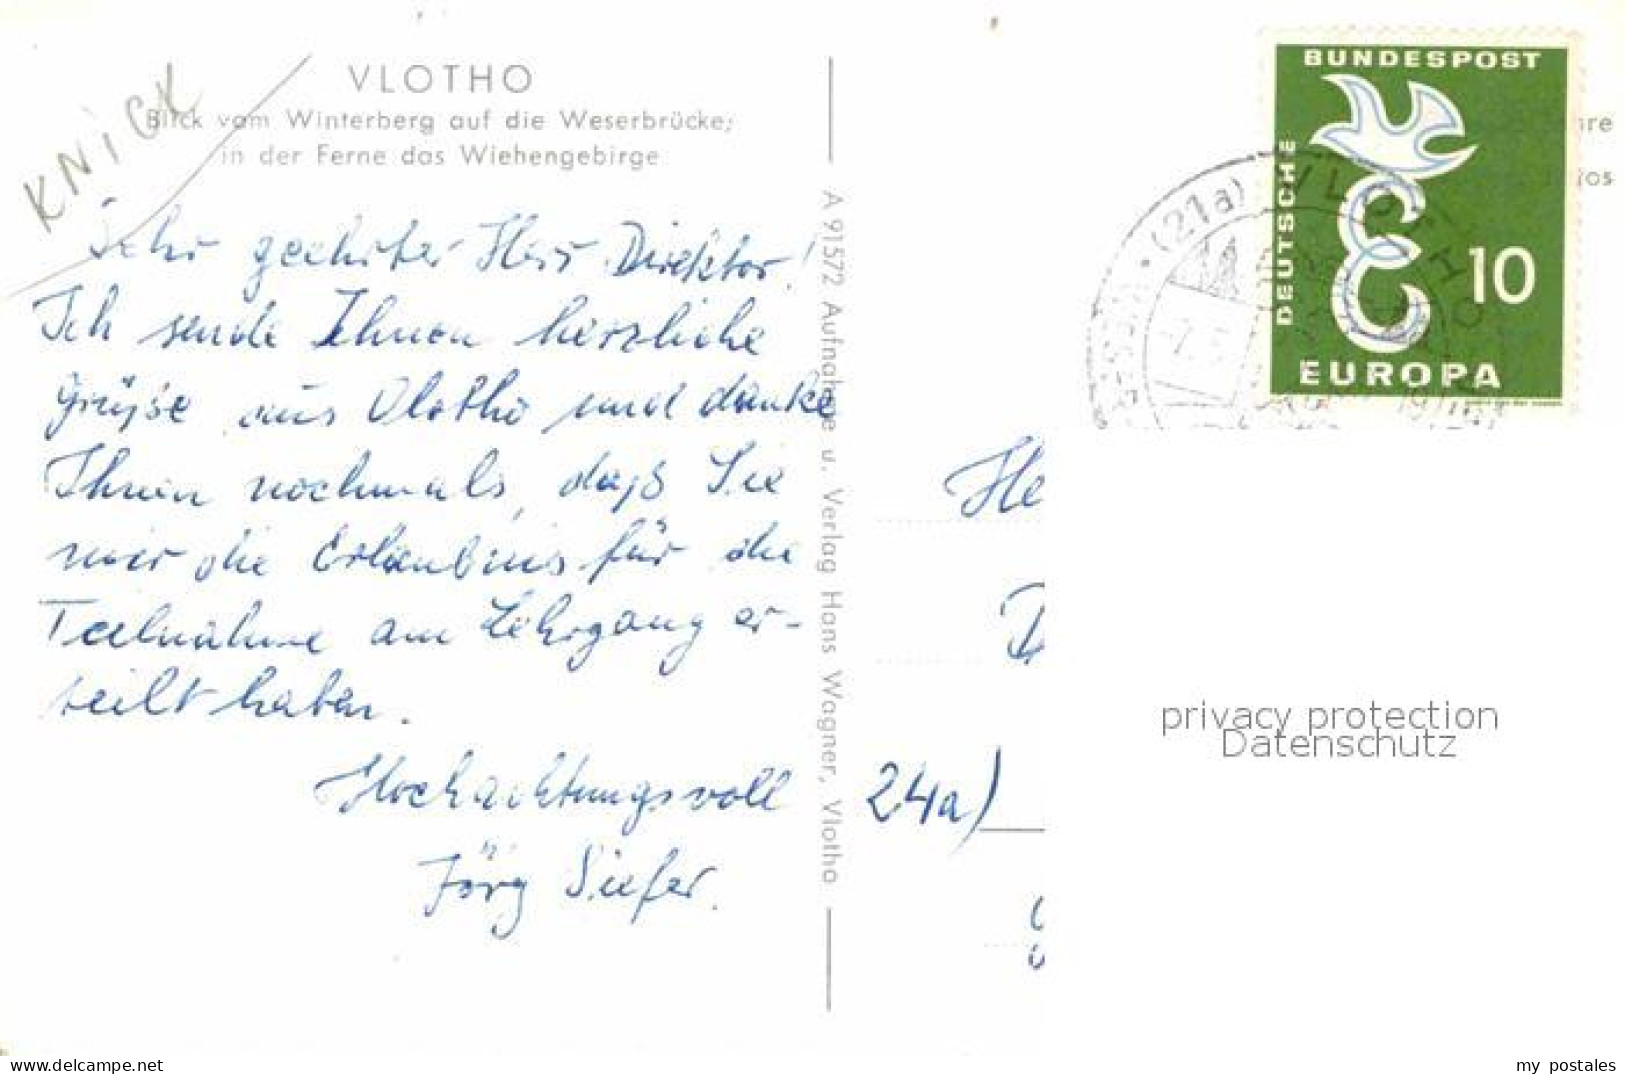 KNICK
VLOTHO
Blick vom Winterberg auf die Weserbrücke;
in der Ferne das Wiehengebirge
Sehr geehrter Herr Direktor!
Ich sende Ihnen herzliche
Grüße aus Vlotho und danke
Ihnen nochmals, daß Sie
mir die Erlaubnis für die
Teilnahme am Lehrgang er-
teilt haben.
Hochachtungsvoll
Jörg Siefer.
A 91572 Aufnahme u. Verlag Hans Wagner, Vlotho
BUNDESPOST
DEUTSCHE
10
EUROPA
(21a) VLOTHO
He
24a)
privacy protection
Datenschutz
DELCAMPE.NET
my postales